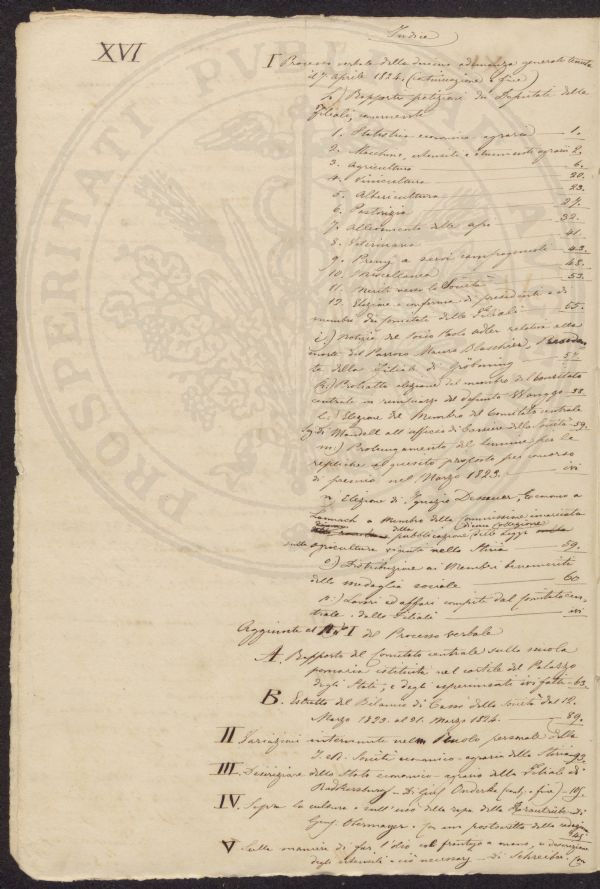 Indice
XVI
I Processo verbale della duodecima adunanza generale tenuta
il 7 Aprile 1824. (continuazione e fine)
Rapporti e petizioni dei Deputati delle
Filiali, concernenti
1. Statistica economico-agraria 1.
2. Macchine, utensili e strumenti agrari 2.
3. Agricoltura 6.
4. Vinicoltura 20.
5. Albericoltura 23.
6. Pastorizia 27.
7. Allevamento delle api 32.
8. Veterinaria 41.
9. Premj a servi campagnuoli 43.
10. Miscellanea 48.
11. Meriti verso la Società 53.
12. Elezione e conferma di presidenti e di
membri dei Comitati delle Filiali 55.
i.) Notizia del Socio Paolo Adler relativa alla
morte del Parroco Mauro Blaschier, Preside
te della Filiale di Gröbming 57.
k.) Protratta elezione del membro del Comitato
centrale in rimpiazzo del defunto Wonggo 58.
l.) Elezione del Membro del Comitato centrale
di Mandell all'officio di Cassiere della Società 59.
m.) Prolungamento del termine per le
repliche al quesito proposto per concorso
di premio nel Marzo 1823. ivi
n. Elezione di Ignazio Dessauer, Economo a
Lannach a Membro della Commissione incaricata
della pubblicazione delle Leggi
sulla agricoltura vigenti nella Stiria 59.
o.) Distribuzione ai Membri benemeriti
della medaglia sociale 60
p.) Lavori ed affari compiti dal Comitato cen-
trale e dalle Filiali ivi
Aggiunte al No I del Processo verbale
A. Rapporto del Comitato centrale sulla scuola
pomaria istituita nel cortile del Palazzo
degli Stati, e degli esperimenti ivi fatti 63.
B. Estratto del Bilancio di Cassa della Società dal 12.
Marzo 1823. al 21. Marzo 1824. 89.
II Variazioni intervenute nel Ruolo personale della
I. R. Società economico-agraria della Stiria 92
III. Descrizione dello Stato economico-agrario della Filiale di
Radkersburg - Di Gius. Onderka (cont. e fine) 115.
IV. Sopra la cultura e sull'uso della rapa detta Krautrübe - Di
Gius. Obermayer. Con un postscritto della redazione
145.
V Sulla maniera di far l'olio col frantojo a mano, e descrizione
degli utensili a ciò necessarj - di Schreiber. Con